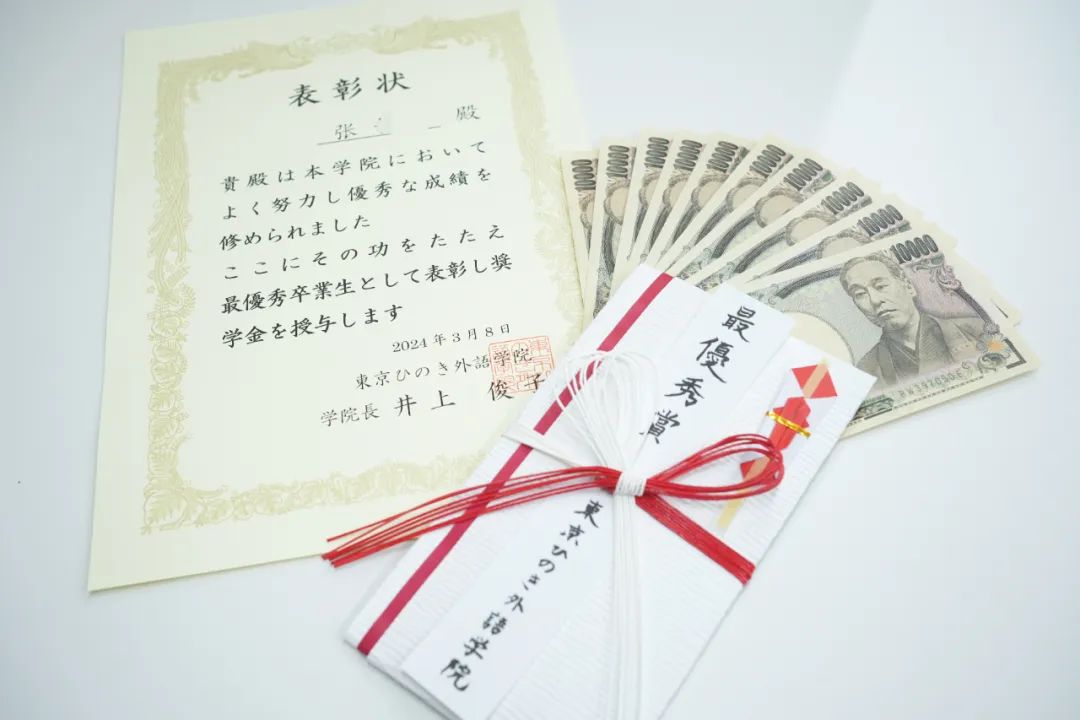 表彰状
张 殿
貴殿は本学院において
よく努力し優秀な成績を
修められました
ここにその功をたたえ
最優秀卒業生として表彰し奨
学金を授与します
2024年3月8日
東京ひのき外語学院
学院長 井上 俊子
最優秀賞
東京ひのき外語学院
10000
10000
10000
10000
10000
10000
10000
10000
10000
10000